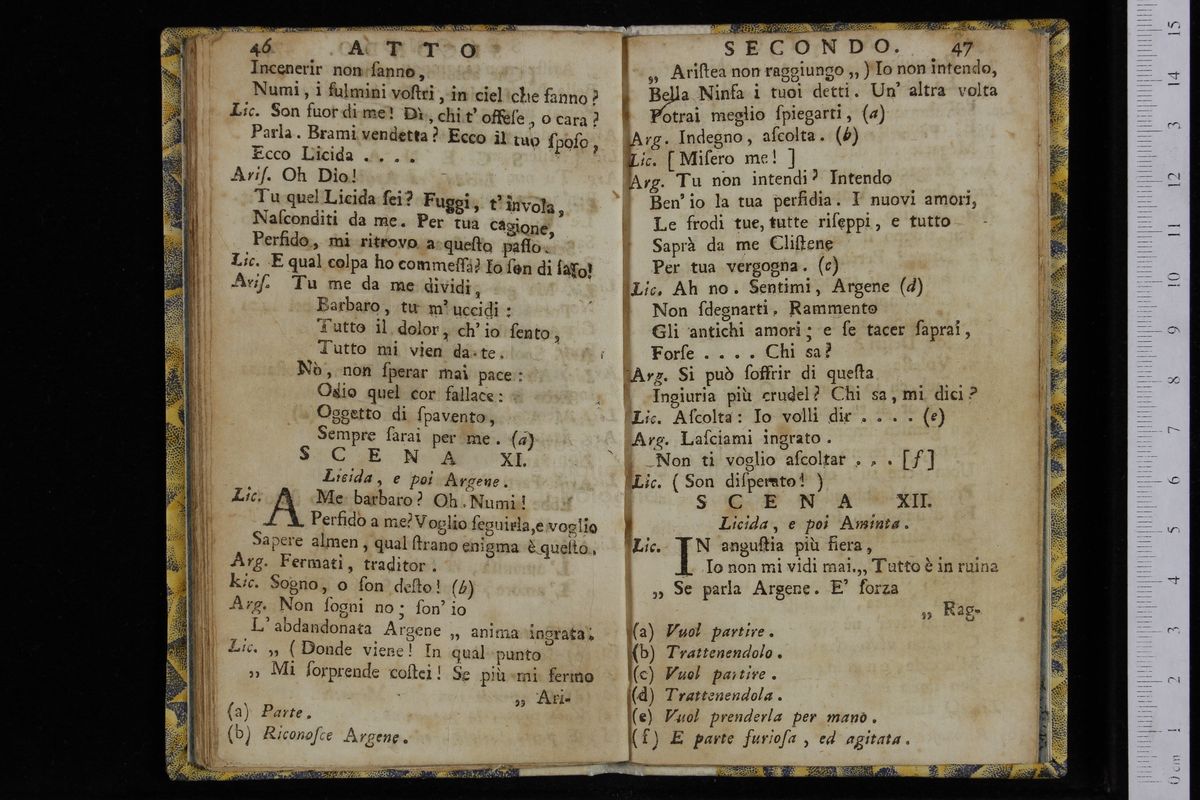 46 A T T O
Incenerir non ſanno,
Numi, i fulmini voſtri, in ciel che fanno?
Lic. Son fuor di me! Dì, chi t' offeſe, o cara?
Parla. Brami vendetta? Ecco il tuo ſpoſo,
Ecco Licida . . . .
Ariſ. Oh Dio!
Tu quel Licida ſei? Fuggi, t' invola,
Naſconditi da me. Per tua cagione,
Perfido, mi ritrovo a queſto paſſo.
Lic. E qual colpa ho commeſſa? Io ſon di ſaſſo!
Ariſ. Tu me da me dividi,
Barbaro, tu m' uccidi:
Tutto il dolor, ch' io ſento,
Tutto mi vien da te.
Nò, non ſperar mai pace:
Odio quel cor fallace:
Oggetto di ſpavento,
Sempre ſarai per me. (a)
S C E N A XI.
Licida, e poi Argene.
Lic. A Me barbaro? Oh Numi!
Perfido a me? Voglio ſeguirla, e voglio
Sapere almen, qual ſtrano enigma è queſto.
Arg. Fermati, traditor.
kic. Sogno, o ſon deſto! (b)
Arg. Non ſogni no; ſon' io
L' abdandonata Argene „ anima ingrata.
Lic. „ (Donde viene! In qual punto
„ Mi ſorprende coſtei! Se più mi fermo
„ Ari-
(a) Parte.
(b) Riconoſce Argene.
SECONDO. 47
„ Ariſtea non raggiungo „) Io non intendo,
Bella Ninfa i tuoi detti. Un' altra volta
Potrai meglio ſpiegarti, (a)
Arg. Indegno, aſcolta. (b)
Lic. [Miſero me! ]
Arg. Tu non intendi? Intendo
Ben' io la tua perfidia. I nuovi amori,
Le frodi tue, tutte riſeppi, e tutto
Saprà da me Cliſtene
Per tua vergogna. (c)
Lic. Ah no. Sentimi, Argene (d)
Non ſdegnarti. Rammento
Gli antichi amori; e ſe tacer ſaprai,
Forſe . . . . Chi sa?
Arg. Si può ſoffrir di queſta
Ingiuria più crudel? Chi sa, mi dici?
Lic. Aſcolta: Io volli dir . . . . (e)
Arg. Laſciami ingrato.
Non ti voglio aſcoltar . . . [f]
Lic. (Son diſperato! )
S C E N A XII.
Licida, e poi Aminta.
Lic. IN anguſtia più fiera,
Io non mi vidi mai. „ Tutto è in ruina
„ Se parla Argene. E' forza
„ Rag-
(a) Vuol partire.
(b) Trattenendolo.
(c) Vuol partire.
(d) Trattenendola.
(e) Vuol prenderla per mano.
(f) E parte furioſa, ed agitata.
0 cm 1 2 3 4 5 6 7 8 9 10 11 12 3 14 15